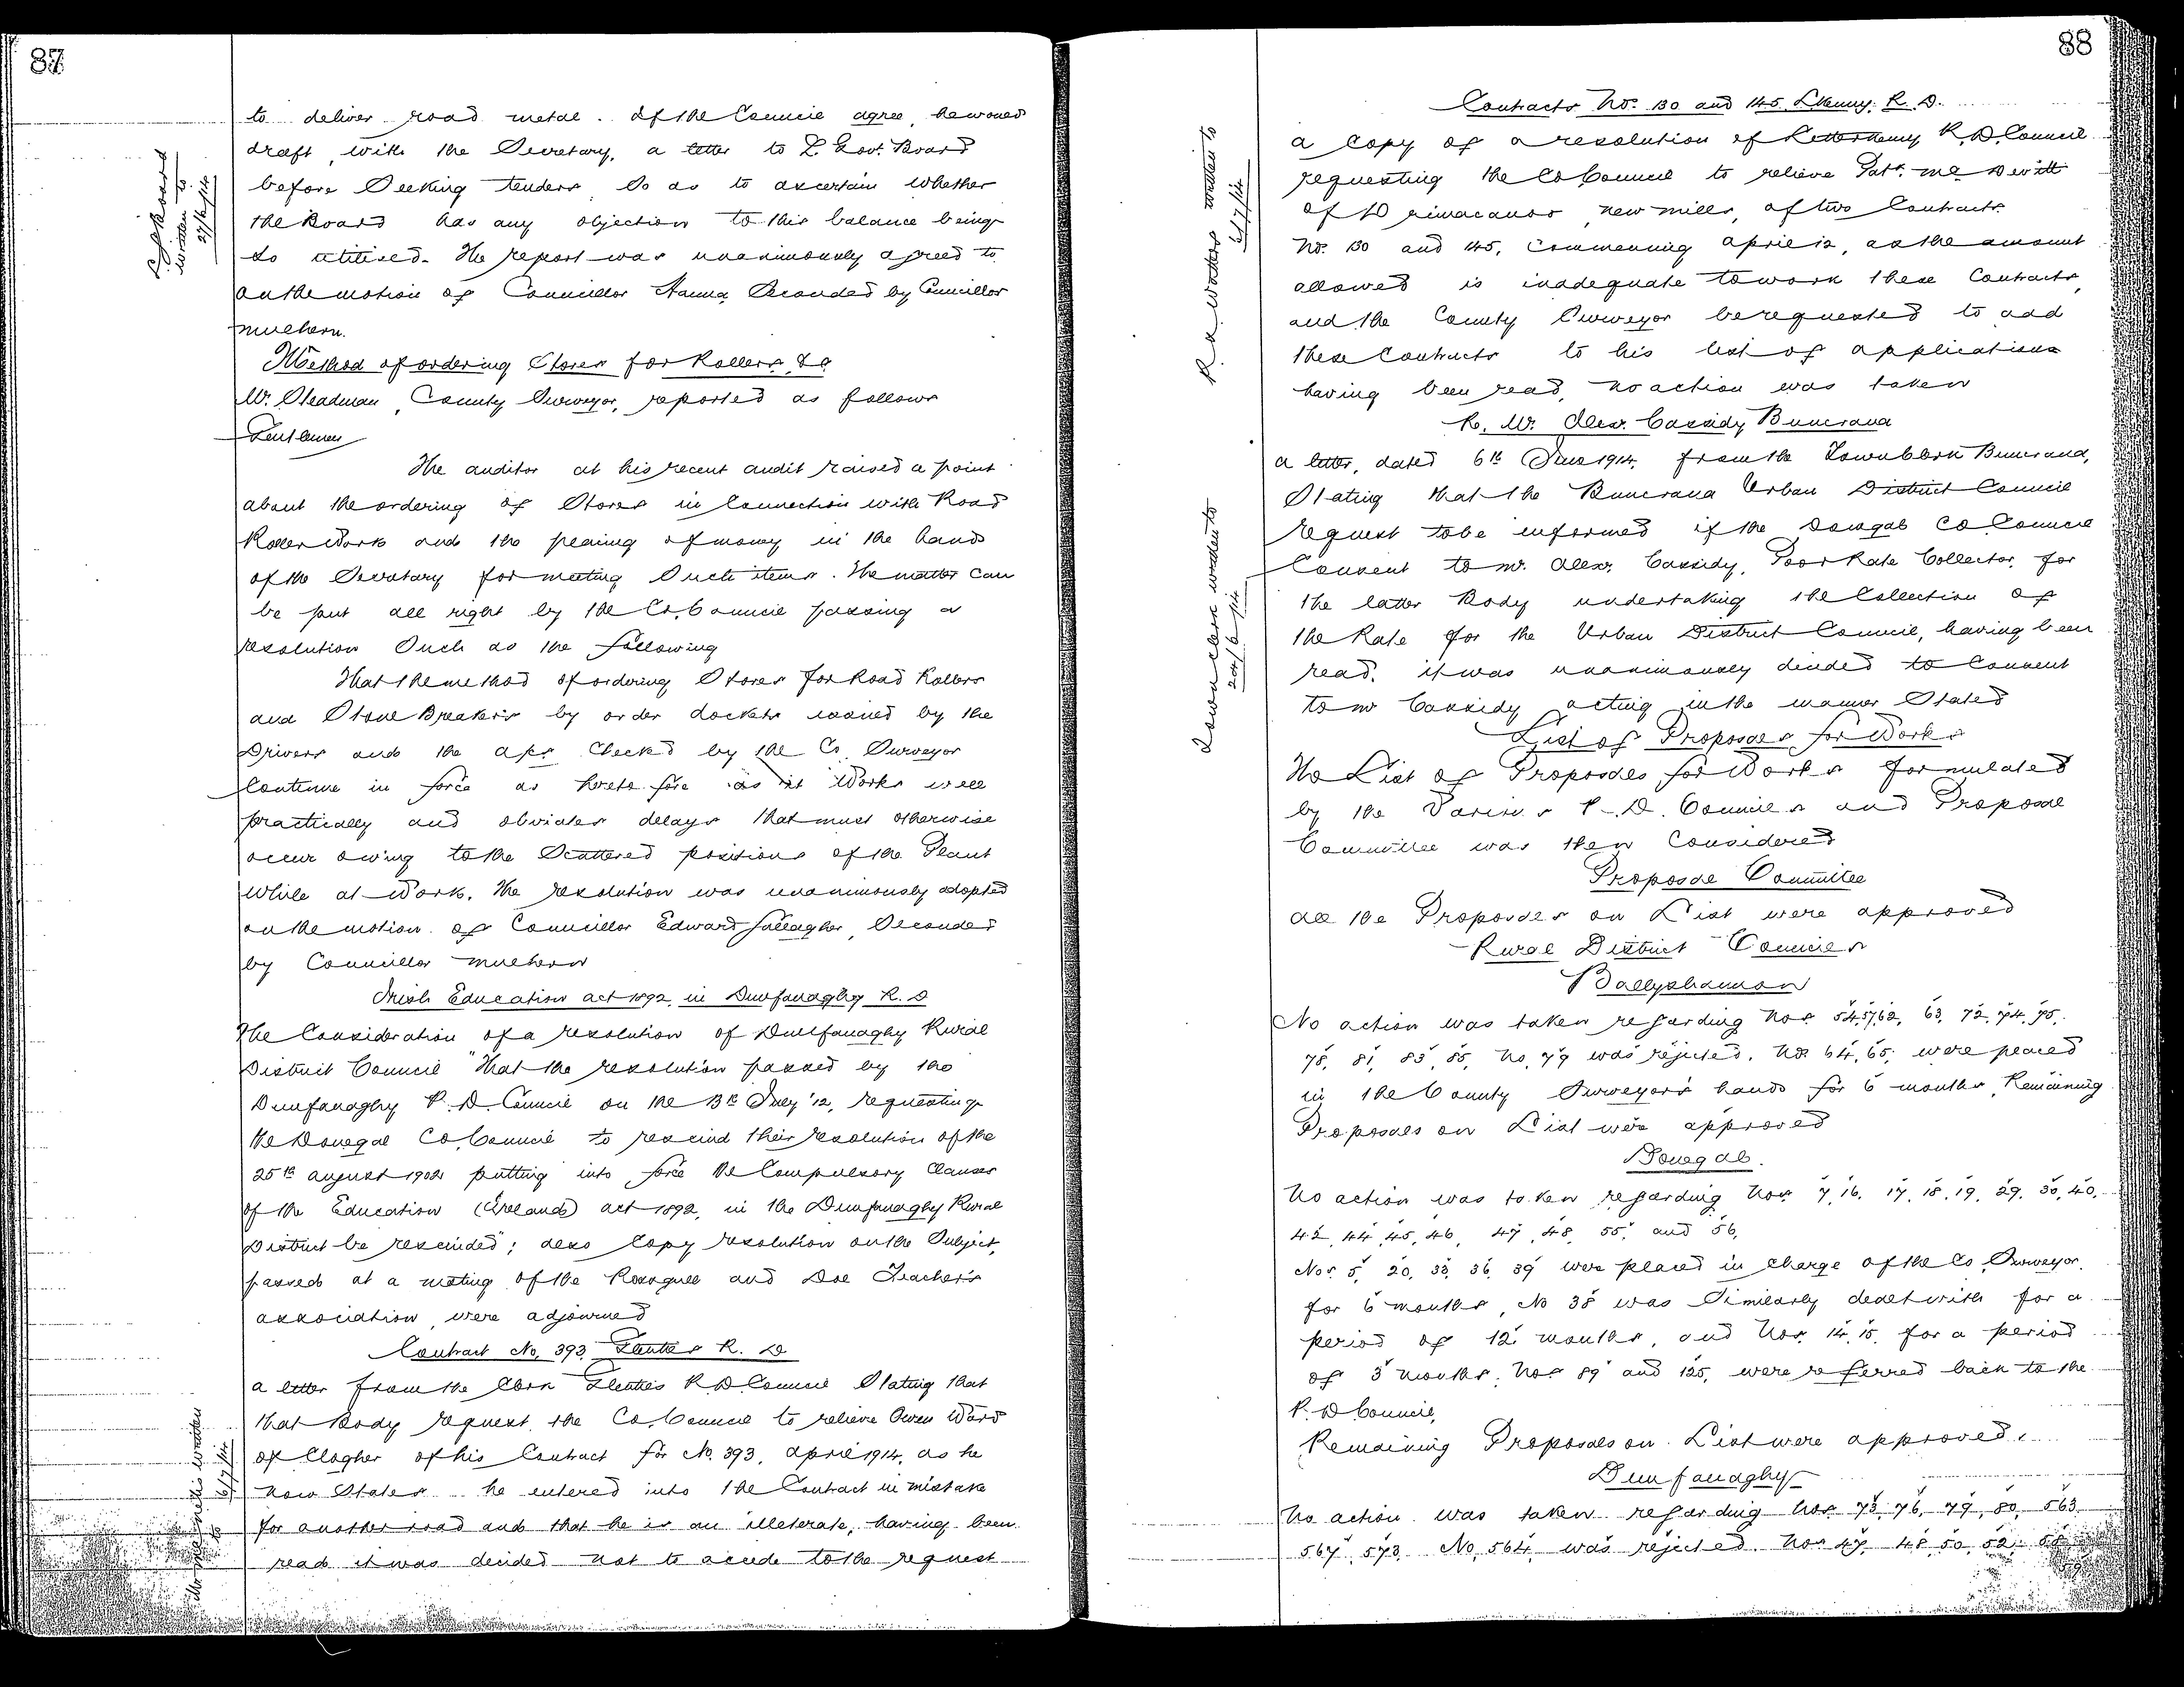 87
to deliver road metal. If the Council agree, he would
draft, with the Secretary, a letter to L. Govt. Board
before Seeking tenders So as to ascertain whether
the Board has any objection to this balance being
so utilised. The report was unanimously agreed to
on the motion of Councillor Hanna Seconded by Councillor
Mulhern.
Method of ordering Stores for Rollers &c
Mr. Steadman, County Surveyor, reported as follows
Gentlemen
The auditor at his recent audit raised a point
about the ordering of Stores in Connection with Road
Roller Work and the placing of money in the hands
of the Secretary for meeting Such items. The matter can
be put all right by the Co. Council passing a
resolution Such as the following
That the method of ordering Stores for Road Rollers
and Stone Breakers by order dockets issued by the
Drivers and the a/cs Checked by the Co. Surveyor
Continue in force as heretofore as it Works well
practically and obviates delays that must otherwise
occur owing to the Scattered positions of the Plant
While at Work. The resolution was unanimously adopted
on the motion of Councillor Edward Gallagher, Seconded
by Councillor Mulhern
Irish Education act 1892, in Dunfanaghy R. D
The Consideration of a resolution of Dunfanaghy Rural
District Council "That the resolution passed by the
Dunfanaghy R. D. Council on the 13th July '12, requesting
the Donegal Co. Council to rescind their resolution of the
25th august 1902 putting into force the Compulsory Clauses
of the Education (Ireland) act 1892, in the Dunfanaghy Rural
District be rescinded"; also Copy resolution on the Subject,
passed at a meeting of the Rosaguill and Doe Teacher's
association, were adjourned
Contract No. 393, Glenties R. D
a letter from the Clerk Glenties R D Council Stating that
that Body request the Co. Council to relieve Owen Ward
of Clogher of his Contract for No. 393, April 1914, as he
now States he entered into the Contract in mistake
for another road and that he is an illeterate, having been
read it was decided not to accede to the request
L G Board
written to
27/6/14
written
6/7/14
88
Contracts No. 130 and 145, LKenny. R. D.
a Copy of a resolution of Letterkenny R. D. Council
requesting the Co Council to relieve Patk. McDevitt
of new mills, of two Contracts
No. 130 and 145, Commencing April 12, as the amount
allowed is inadequate to work these Contracts,
and the County Surveyor be requested to add
these Contracts to his list of applications
having been read, no action was taken
R. Mr. Alex. Cassidy Buncrana
a letter, dated 6th June 1914, from the Town Clerk Buncrana,
Stating that the Buncrana Urban District Council
request to be informed if the Donegal Co Council
Consent to Mr. Alex. Cassidy, Poor Rate Collector, for
the latter Body undertaking the Collection of
the Rate for the Urban District Council, having been
read, it was unanimously decided to Consent
to Mr Cassidy acting in the manner Stated
List of Proposals for Works
The List of Proposals for Works formulated
by the Various R. D. Councils and Proposal
Committee was then Considered
Proposal Committee
All the Proposals on List were approved
Rural District Councils
Ballyshannon
No action was taken regarding Nos. 54, 57, 62, 63, 72, 74, 75,
78, 81, 83, 85, No. 79 was rejected. Nos 64, 65, were placed
in the County Surveyor's hands for 6 months, Remaining
Proposals on List were approved
Donegal.
No action was taken regarding Nos. 7, 16, 17, 18, 19, 29, 30, 40,
42, 44, 45, 46, 47, 48, 55, and 56,
Nos. 5, 20, 33, 36, 39 were placed in charge of the Co. Surveyor
for 6 months, No 38 was Similarly dealt with for a
period of 12 months, and Nos. 14, 15, for a period
of 3 months. Nos 89 and 125, were referred back to the
R. D Council,
Remaining Proposals on List were approved.
Dunfanaghy
No action was taken regarding Nos. 73, 76, 79, 80, 563
567, 573 No. 564 was rejected. Nos 47, 48, 50, 52,
R. A. Watters written to
6/7/14
Town Clerk written to
24/6/14